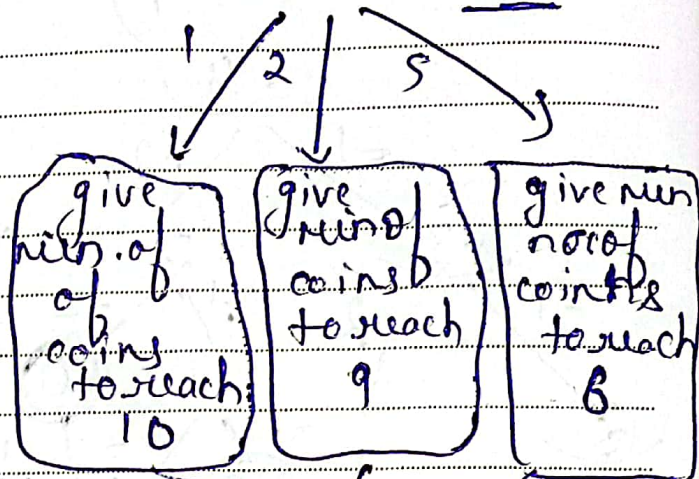 1 2 5
give
min. of
of
coins
to reach
10
give
min of
coins
to reach
9
give min
no. of
coins
to reach
6